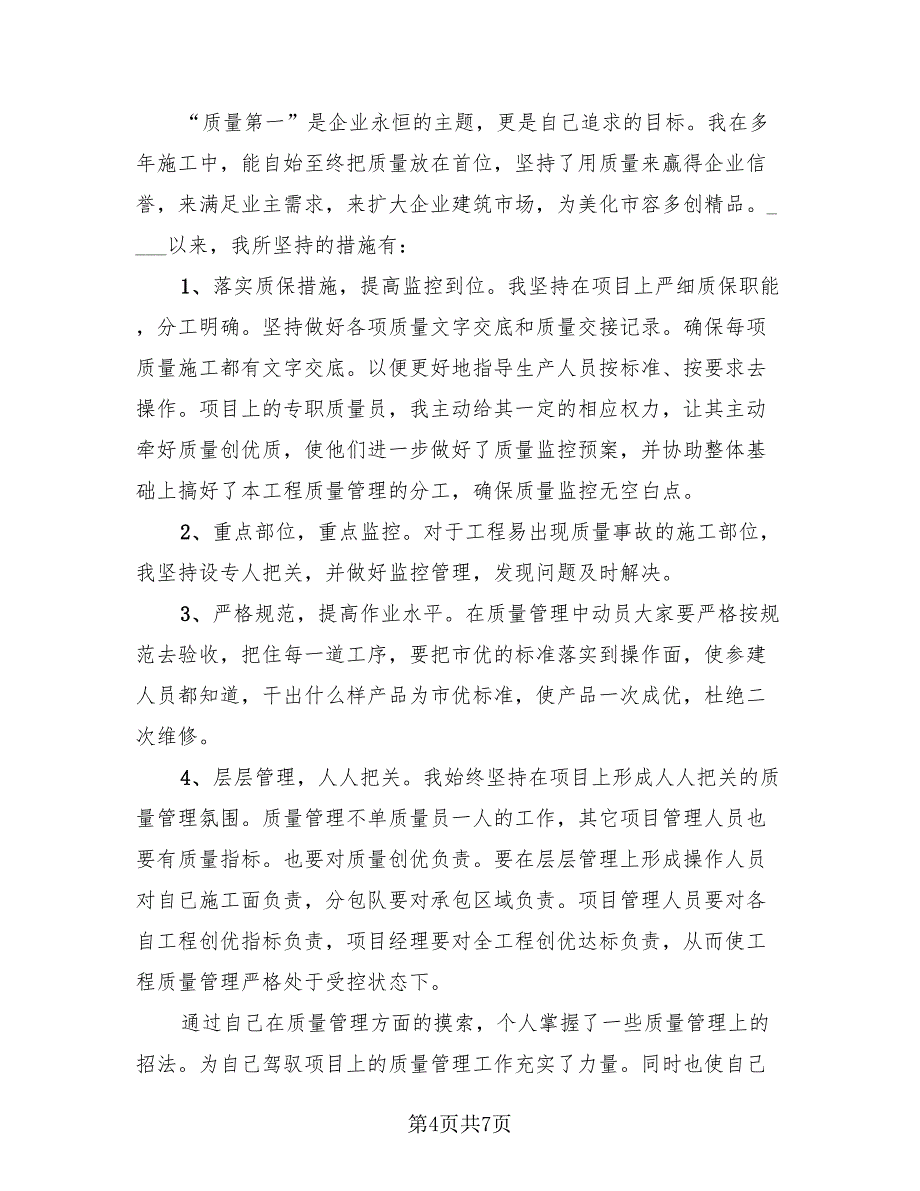 “质量第一”是企业永恒的主题，更是自己追求的目标。我在多
年施工中，能自始至终把质量放在首位，坚持了用质量来赢得企业信
誉，来满足业主需求，来扩大企业建筑市场，为美化市容多创精品。_
___以来，我所坚持的措施有：
1、落实质保措施，提高监控到位。我坚持在项目上严细质保职能
，分工明确。坚持做好各项质量文字交底和质量交接记录。确保每项
质量施工都有文字交底。以便更好地指导生产人员按标准、按要求去
操作。项目上的专职质量员，我主动给其一定的相应权力，让其主动
牵好质量创优质，使他们进一步做好了质量监控预案，并协助整体基
础上搞好了本工程质量管理的分工，确保质量监控无空白点。
2、重点部位，重点监控。对于工程易出现质量事故的施工部位，
我坚持设专人把关，并做好监控管理，发现问题及时解决。
3、严格规范，提高作业水平。在质量管理中动员大家要严格按规
范去验收，把住每一道工序，要把市优的标准落实到操作面，使参建
人员都知道，干出什么样产品为市优标准，使产品一次成优，杜绝二
次维修。
4、层层管理，人人把关。我始终坚持在项目上形成人人把关的质
量管理氛围。质量管理不单质量员一人的工作，其它项目管理人员也
要有质量指标。也要对质量创优负责。要在层层管理上形成操作人员
对自己施工面负责，分包队要对承包区域负责。项目管理人员要对各
自工程创优指标负责，项目经理要对全工程创优达标负责，从而使工
程质量管理严格处于受控状态下。
通过自己在质量管理方面的摸索，个人掌握了一些质量管理上的
招法。为自己驾驭项目上的质量管理工作充实了力量。同时也使自己
第4页共7页